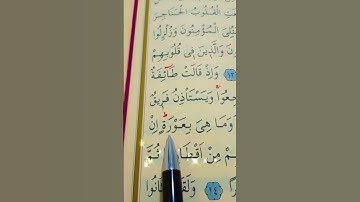 ـتِ الْقُلُوبُ الْحَنَاجِرَ
ـتُلِيَ الْمُؤْمِنُونَ وَزُلْزِلُوا
ـونَ وَالَّذِينَ فِي قُلُوبِهِمْ
﴿١٢﴾ وَإِذْ قَالَتْ طَآئِفَةٌ
ـجِعُوا وَيَسْتَأْذِنُ فَرِيقٌ
وَمَا هِيَ بِعَوْرَةٍ إِنْ
ـهِمْ مِنْ أَقْطَا ثُمَّ
ـرًا ﴿١٤﴾ وَلَقَـ ـانُوا